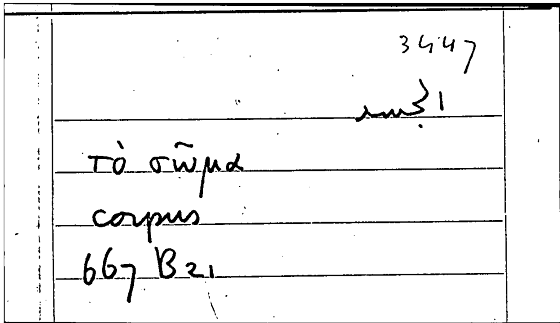 3447
τὸ σῶμα
corpus
667 B 21